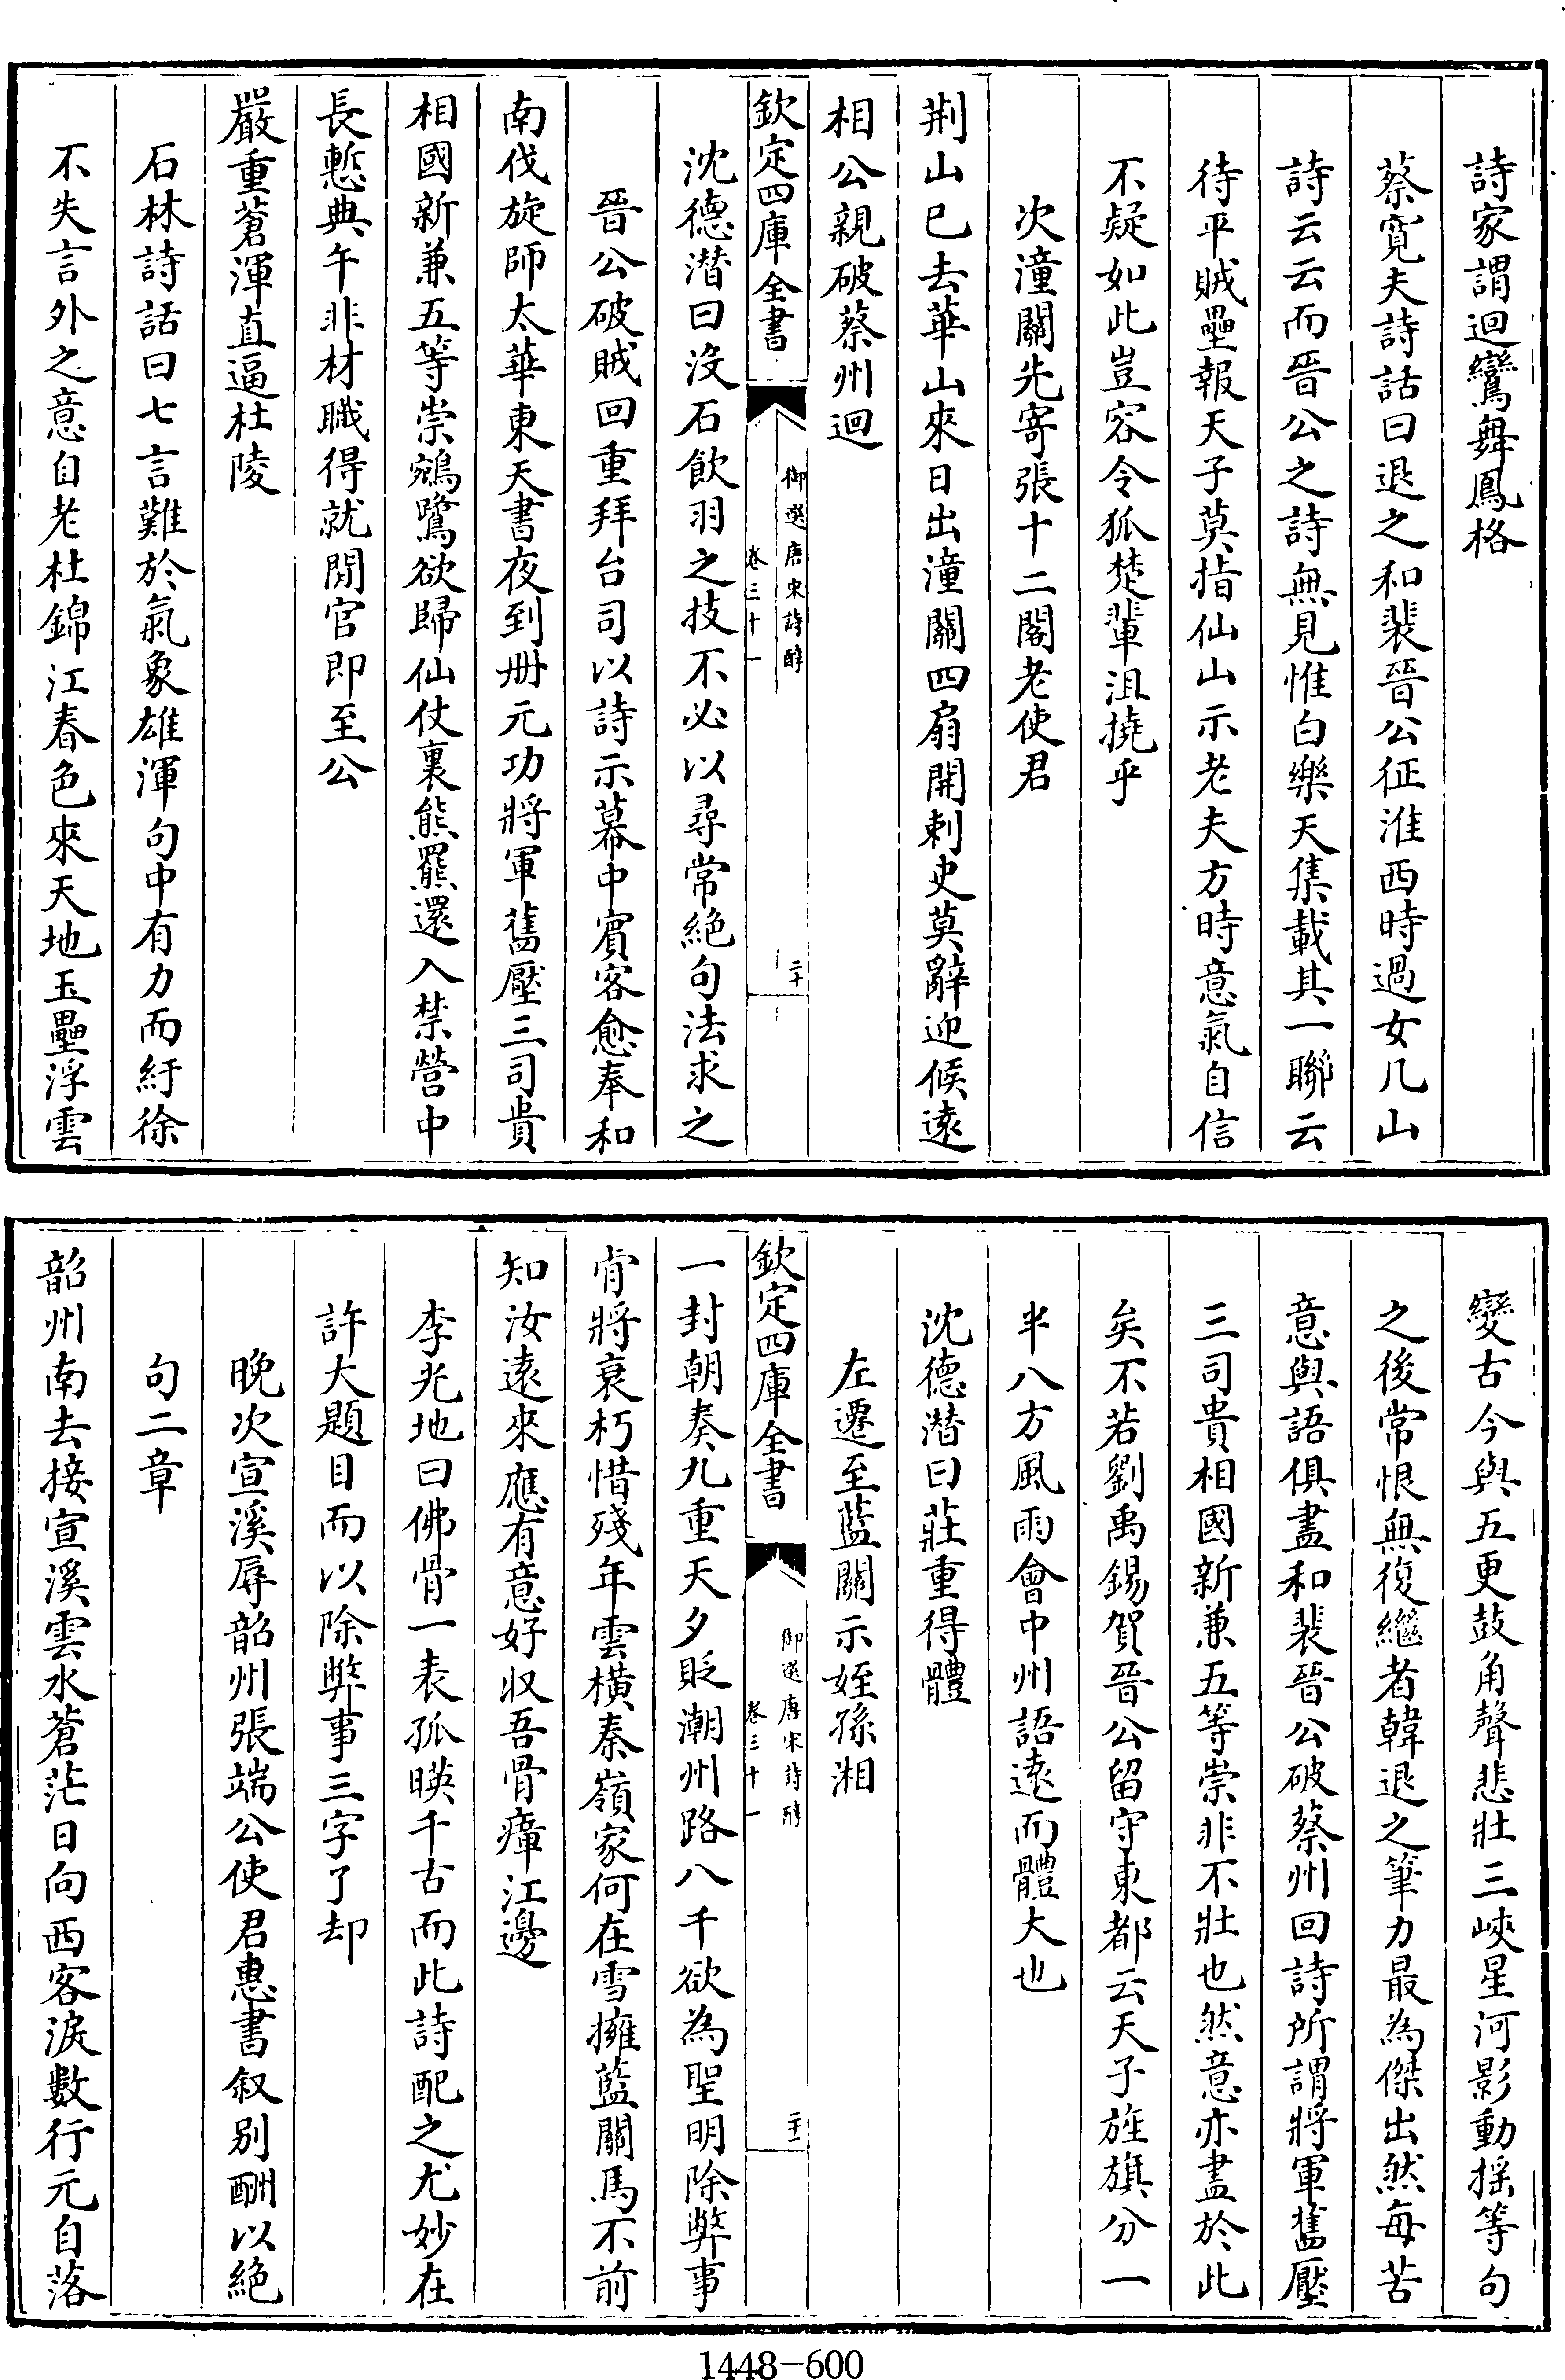 詩家謂迴鸞舞鳳格
蔡寛夫詩話曰退之和裴晉公征淮西時過女几山
詩云云而晉公之詩無見惟白樂天集載其一聯云
待平賊壘報天子莫指仙山示老夫方時意氣自信
不疑如此豈容令狐楚輩沮撓乎
次潼關先寄張十二閣老使君
荆山已去華山來日出潼關四扇開刺史莫辭迎候遠
相公親破蔡州迴
欽定四庫全書
御選唐宋詩醇
卷三十一
二十
沈德潛曰沒石飲羽之技不必以尋常絶句法求之
晉公破賊回重拜台司以詩示幕中賓客愈奉和
南伐旋師太華東天書夜到冊元功將軍舊壓三司貴
相國新兼五等崇鵷鷺欲歸仙仗裏熊羆還入禁營中
長慙典午非材職得就閒官即至公
嚴重蒼渾直逼杜陵
石林詩話曰七言難於氣象雄渾句中有力而紆徐
不失言外之意自老杜錦江春色來天地玉壘浮雲
變古今與五更鼓角聲悲壯三峽星河影動搖等句
之後常恨無復繼者韓退之筆力最為傑出然每苦
意與語俱盡和裴晉公破蔡州回詩所謂將軍舊壓
三司貴相國新兼五等崇非不壯也然意亦盡於此
矣不若劉禹錫賀晉公留守東都云天子旌旗分一
半八方風雨會中州語遠而體大也
沈德潛曰莊重得體
左遷至藍關示姪孫湘
欽定四庫全書
御選唐宋詩醇
卷三十一
二十一
一封朝奏九重天夕貶潮州路八千欲為聖明除弊事
肯將衰朽惜殘年雲橫秦嶺家何在雪擁藍關馬不前
知汝遠來應有意好收吾骨瘴江邊
李光地曰佛骨一表孤暎千古而此詩配之尤妙在
許大題目而以除弊事三字了却
晚次宣溪辱韶州張端公使君惠書叙别酬以絶
句二章
韶州南去接宣溪雲水蒼茫日向西客淚數行元自落
1448-600